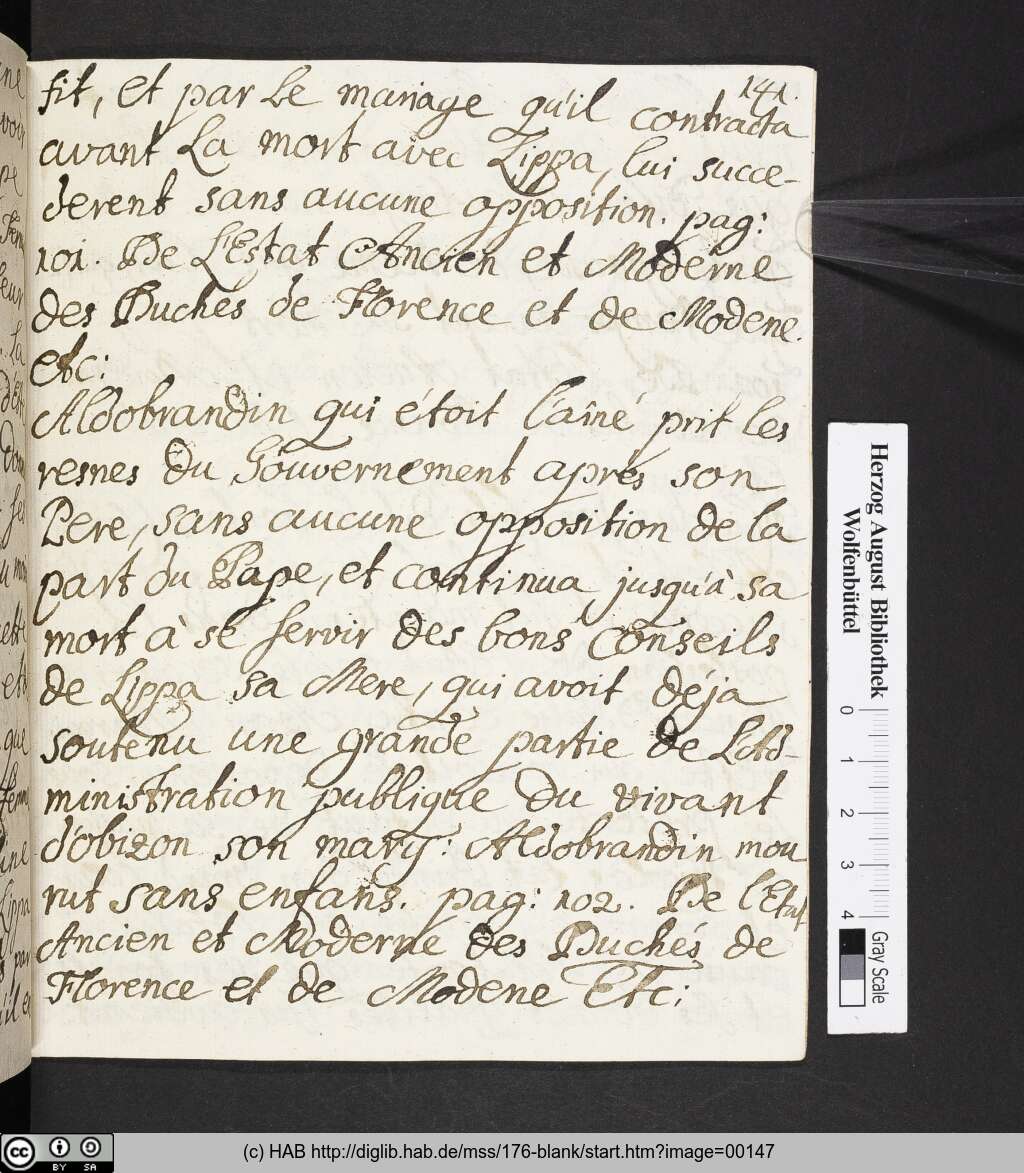 141.
fit, et par Le mariage qu'il contracta
avant La mort avec Lippa, lui succe-
derent sans aucune opposition. pag:
101. De L'Estat Ancien et Moderne
des Duches de Florence et de Modene.
etc:
Aldobrandin qui étoit l'aîné prit les
resnes du Gouvernement aprés son
Pere, sans aucune opposition de la
part du Pape, et continua jusqu'à sa
mort à se servir des bons conseils
de Lippa sa Mere, qui avoit déja
soutenu une grande partie de L'Ad-
ministration publique du vivant
d'obizon son mary: Aldobrandin mou
rut sans enfans. pag: 102. De l'Etat
Ancien et Moderne des Duchés de
Florence et de Modene Etc:
Herzog August Bibliothek
Wolfenbüttel
0 1 2 3 4
Gray Scale
cc BY SA
(c) HAB http://diglib.hab.de/mss/176-blank/start.htm?image=00147